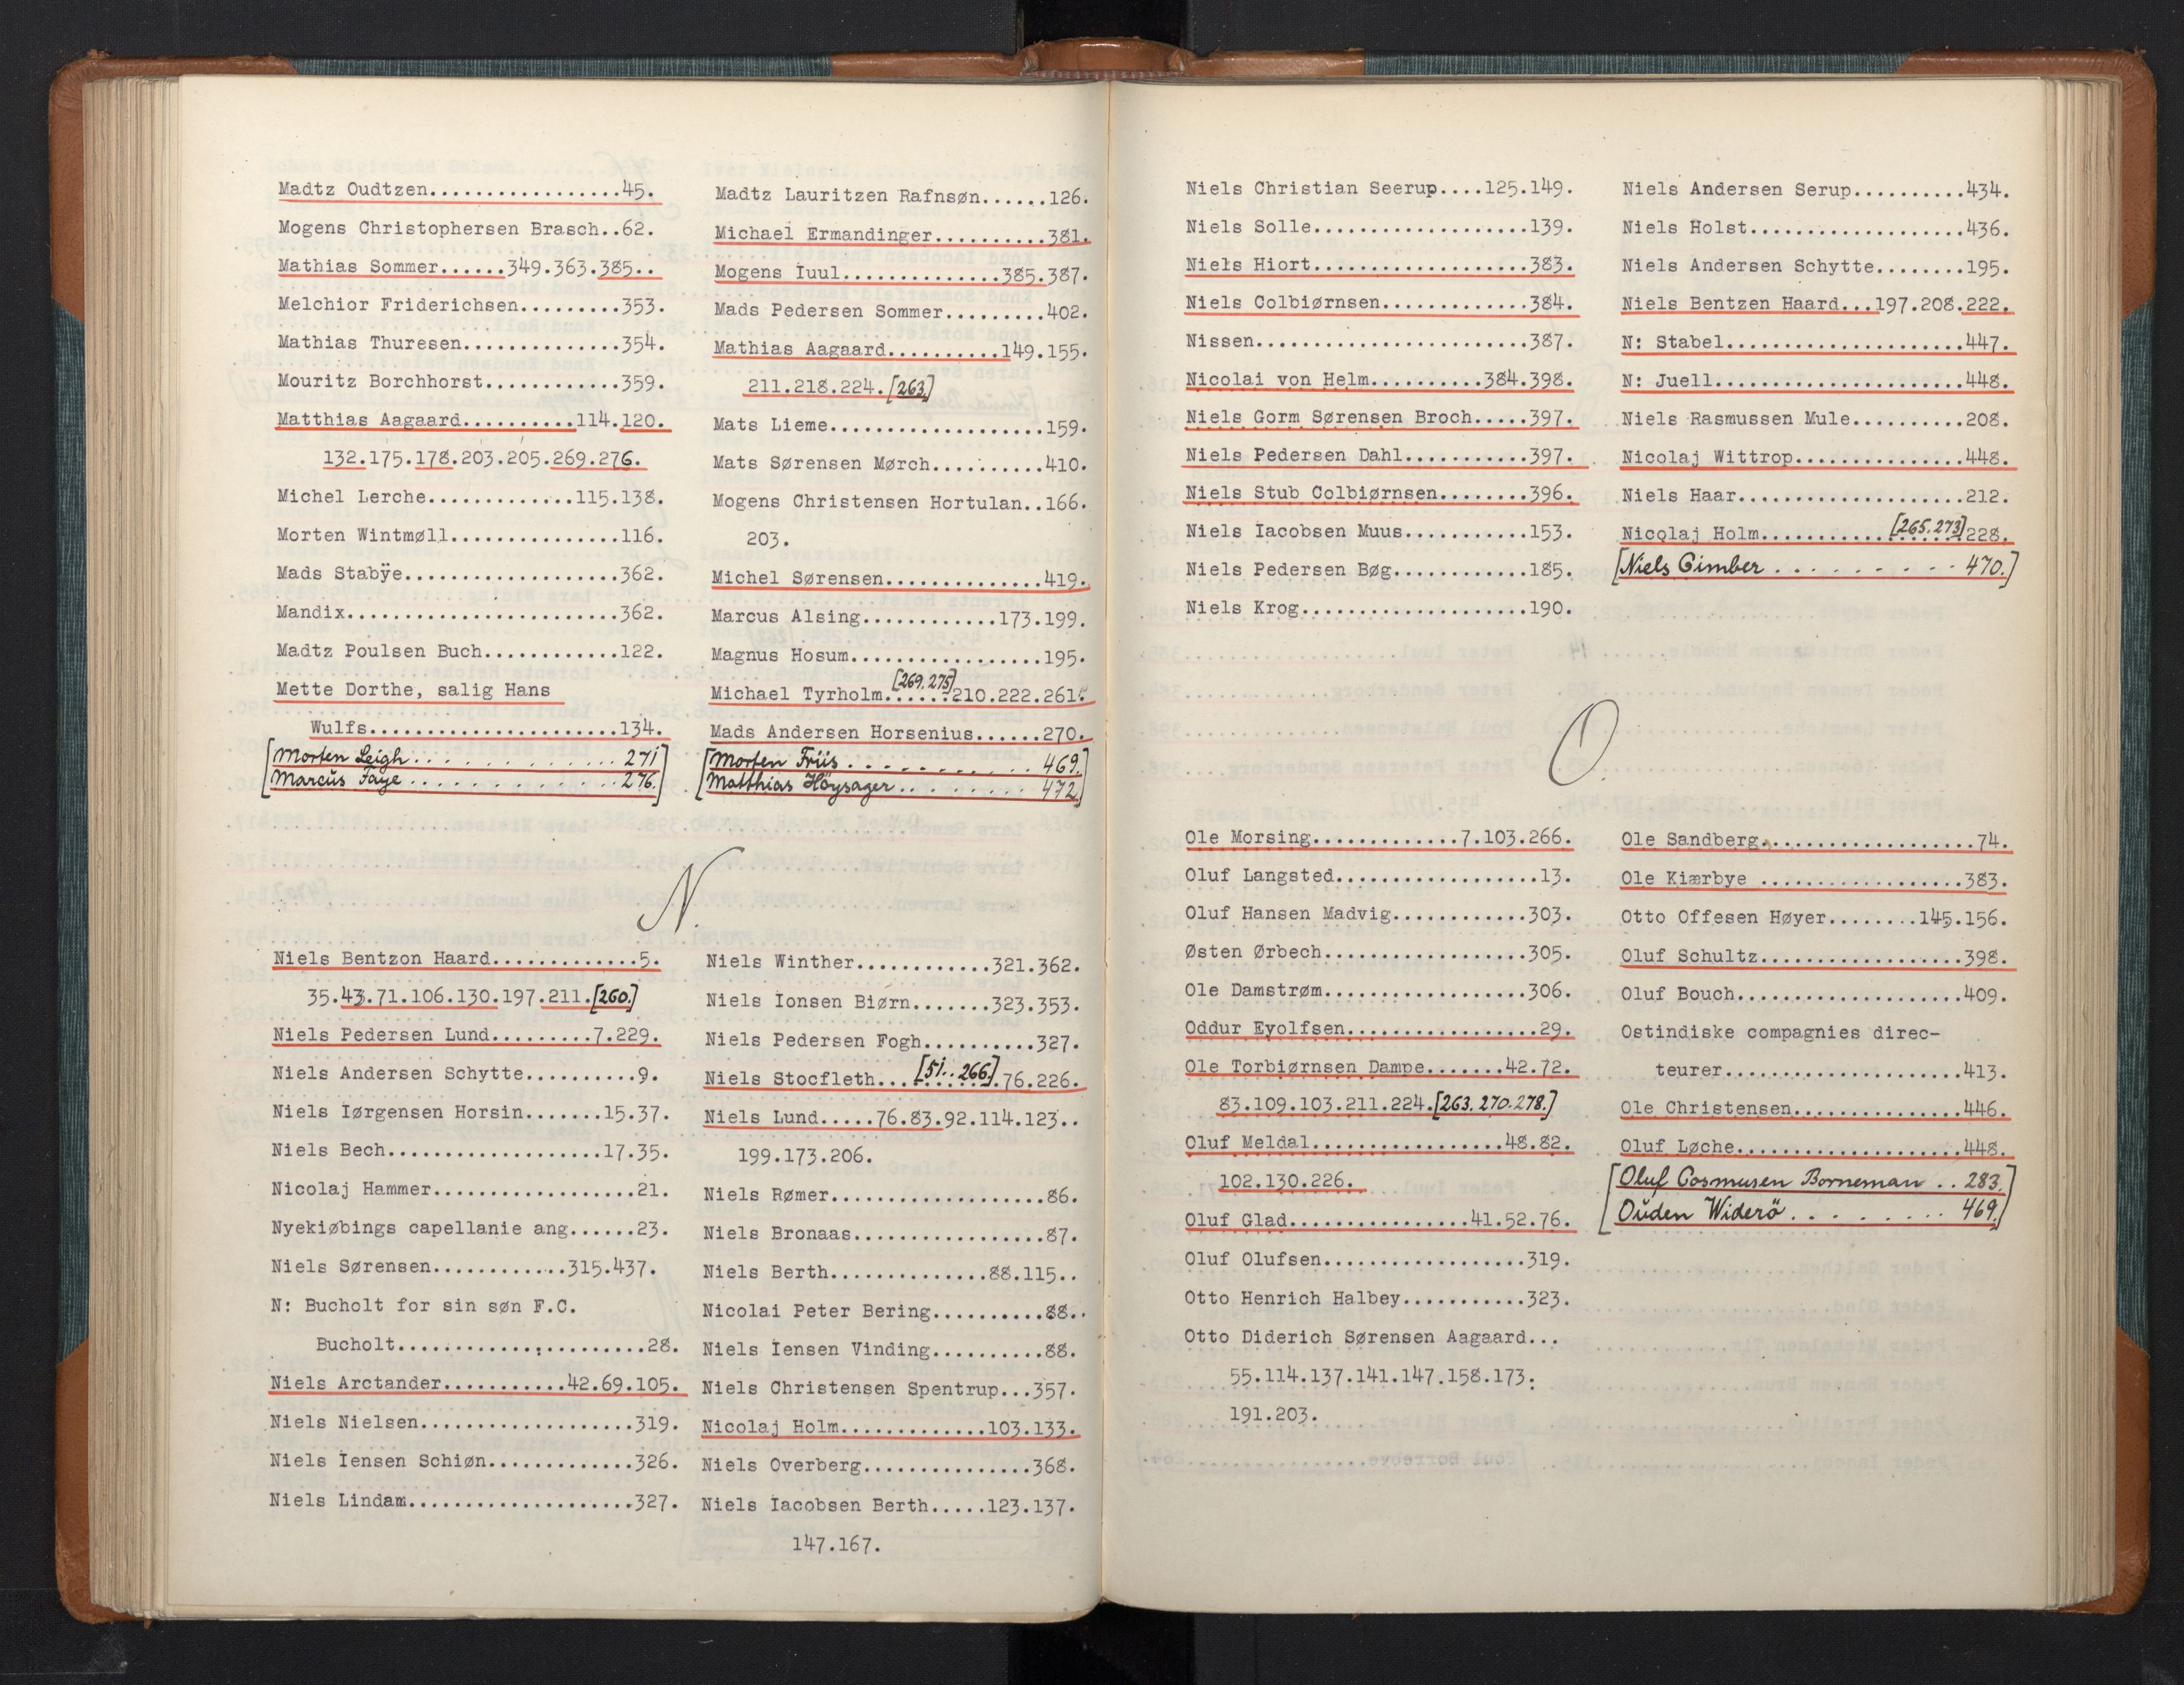 Madtz Oudtzen.................45.
Mogens Christophersen Brasch..62.
Mathias Sommer......349.363.385..
Melchior Friderichsen.........353.
Mathias Thuresen..............354.
Mouritz Borchhorst............359.
Matthias Aagaard..........114.120.
132.175.178.203.205.269.276.
Michel Lerche.............115.138.
Morten Wintmøll...............116.
Mads Stabÿe...................362.
Mandix........................362.
Madtz Poulsen Buch............122.
Mette Dorthe, salig Hans
Wulfs......................134.
[Morten Leigh . . . . . . . . . . . . 271]
[Marcus Faye . . . . . . . . . . . . 276.]
Madtz Lauritzen Rafnsøn......126.
Michael Ermandinger..........381.
Mogens Iuul..............385.387.
Mads Pedersen Sommer.........402.
Mathias Aagaard..........149.155.
211.218.224.[263.]
Mats Lieme...................159.
Mats Sørensen Mørch..........410.
Mogens Christensen Hortulan..166.
203.
Michel Sørensen..............419.
Marcus Alsing............173.199.
Magnus Hosum.................195.
[269.275]
Michael Tyrholm......210.222.261.
Mads Andersen Horsenius......270.
[Morten Friis . . . . . . . . . . . 469.]
[Matthias Höysager . . . . . . . . 472.]
N.
Niels Bentzon Haard.............5.
35.43.71.106.130.197.211.[260.]
Niels Pedersen Lund.........7.229.
Niels Andersen Schytte..........9.
Niels Iørgensen Horsin.......15.37.
Niels Bech...................17.35.
Nicolaj Hammer..................21.
Nyekiøbings capellanie ang......23.
Niels Sørensen............315.437.
N: Bucholt for sin søn F.C.
Bucholt......................28.
Niels Arctander...........42.69.105.
Niels Nielsen...................319.
Niels Iensen Schiøn.............326.
Niels Lindam....................327.
Niels Winther............321.362.
Niels Ionsen Biørn.......323.353.
Niels Pedersen Fogh..........327.
Niels Stocfleth...[51..266.].76.226.
Niels Lund.....76.83.92.114.123..
199.173.206.
Niels Rømer...................86.
Niels Bronaas.................87.
Niels Berth..............88.115..
Nicolai Peter Bering..........88..
Niels Iensen Vinding..........88.
Niels Christensen Spentrup...357.
Nicolaj Holm.............103.133.
Niels Overberg...............368.
Niels Iacobsen Berth.....123.137.
147.167.
Niels Christian Seerup....125.149.
Niels Solle...................139.
Niels Hiort...................383.
Niels Colbiørnsen.............384.
Nissen........................387.
Nicolai von Helm..........384.398.
Niels Gorm Sørensen Broch.....397.
Niels Pedersen Dahl...........397.
Niels Stub Colbiørnsen........396.
Niels Iacobsen Muus...........153.
Niels Pedersen Bøg............185.
Niels Krog....................190.
Niels Andersen Serup..........434.
Niels Holst...................436.
Niels Andersen Schytte........195.
Niels Bentzen Haard...197.208.222.
N: Stabel.....................447.
N: Juell......................448.
Niels Rasmussen Mule..........208.
Nicolaj Wittrop...............448.
Niels Haar....................212.
Nicolaj Holm............[265.273]228.
[Niels Cimber . . . . . . . . . . 470.]
O.
Ole Morsing.............7.103.266.
Oluf Langsted..................13.
Oluf Hansen Madvig............303.
Østen Ørbech..................305.
Ole Damstrøm..................306.
Oddur Eyolfsen.................29.
Ole Torbiørnsen Dampe.......42.72.
83.109.103.211.224.[263.270.278.]
Oluf Meldal.................48.82.
102.130.226.
Oluf Glad................41.52.76.
Oluf Olufsen..................319.
Otto Henrich Halbey...........323.
Otto Diderich Sørensen Aagaard...
55.114.137.141.147.158.173.
191.203.
Ole Sandberg...................74.
Ole Kiærbye ..................383.
Otto Offesen Høyer........145.156.
Oluf Schultz..................398.
Oluf Bouch....................409.
Ostindiske compagnies direc-
teurer.....................413.
Ole Christensen...............446.
Oluf Løche....................448.
[Oluf Cosmusen Borneman . . 283.]
[Ouden Widerö . . . . . . . . 469.]